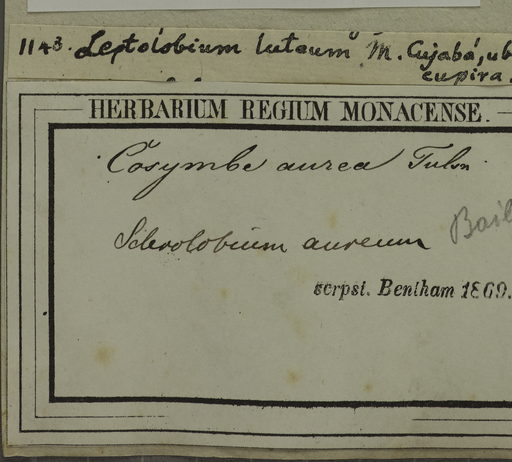 1143. Leptolobium lutaum M. Cujabá, ub
cupira.
HERBARIUM REGIUM MONACENSE.
Cosymbe aurea Tulsn
Sclerolobium aureum Bail
scrpsi. Bentham 1869.